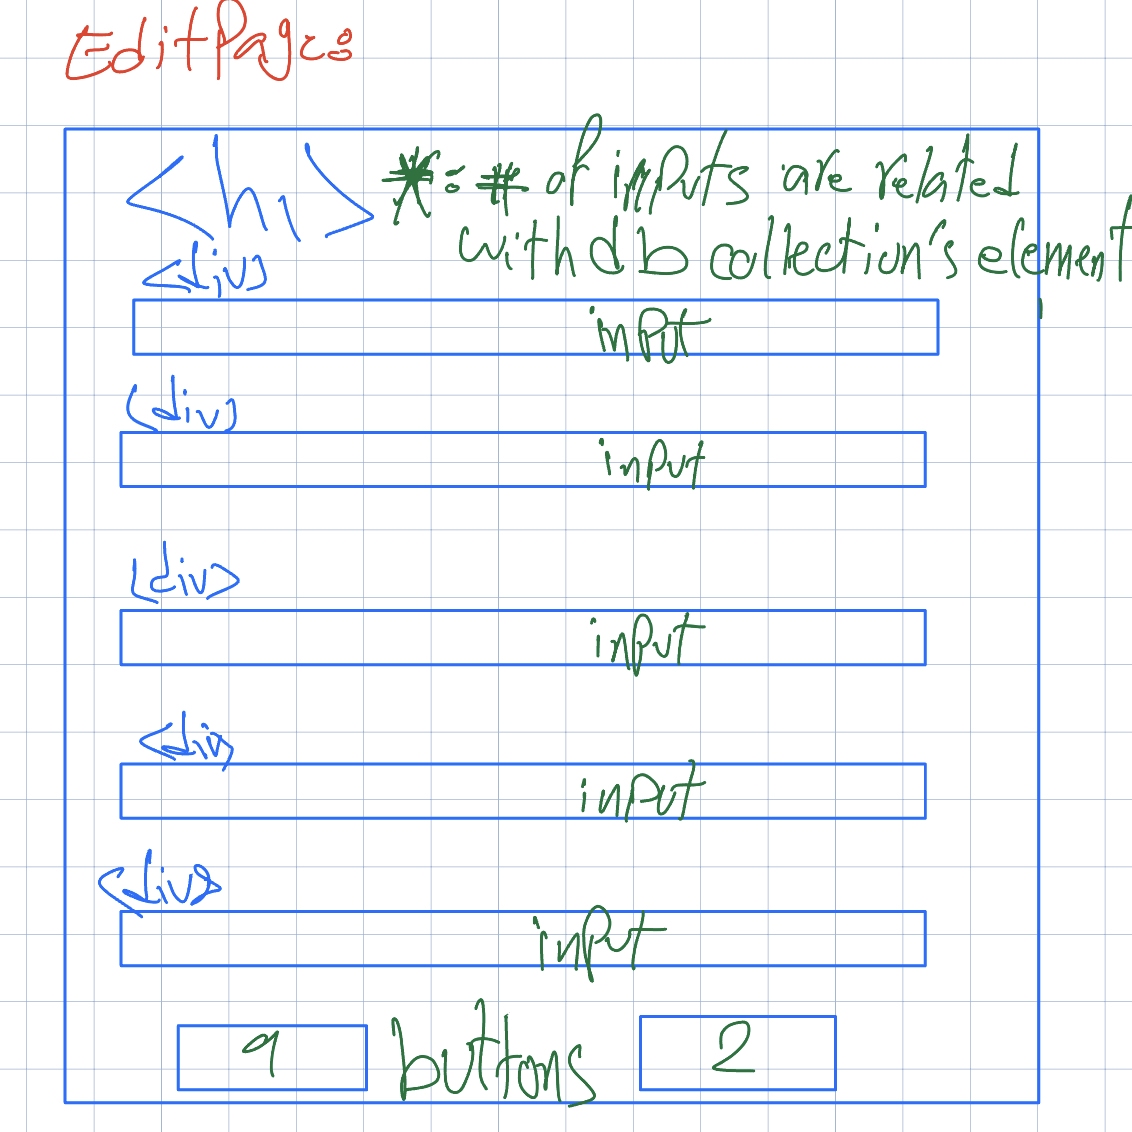 EditPage:
<h1> *: # of inputs are related
with db collection's element
<div>
input
<div>
input
<div>
input
<div>
input
<div>
input
1 buttons 2